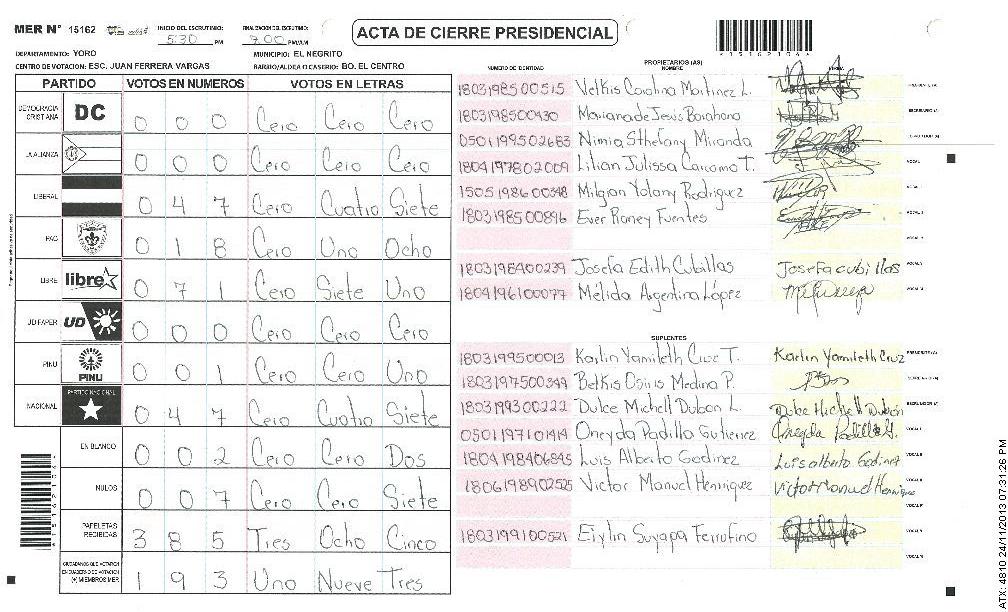 MER N° 15162
INICIO DEL ESCRUTINIO: 5:30 PM
FINALIZACION DEL ESCRUTINIO: 7:00 PM/AM
ACTA DE CIERRE PRESIDENCIAL
*15162106*
DEPARTAMENTO: YORO
MUNICIPIO: EL NEGRITO
CENTRO DE VOTACION: ESC. JUAN FERRERA VARGAS
BARRIO/ALDEA O CASERIO: BO. EL CENTRO
PARTIDO VOTOS EN NUMEROS VOTOS EN LETRAS
DEMOCRACIA CRISTIANA DC 0 0 0 Cero Cero Cero
LA ALIANZA 0 0 0 Cero Cero Cero
LIBERAL 0 4 7 Cero Cuatro Siete
PAC 0 1 8 Cero Uno Ocho
LIBRE libre 0 7 1 Cero Siete Uno
UD FAPER UD 0 0 0 Cero Cero Cero
PINU PINU 0 0 1 Cero Cero Uno
NACIONAL PARTIDO NACIONAL 0 4 7 Cero Cuatro Siete
EN BLANCO 0 0 2 Cero Cero Dos
NULOS 0 0 7 Cero Cero Siete
PAPELETAS RECIBIDAS 3 8 5 Tres Ocho Cinco
CIUDADANOS QUE VOTARON EN CUADERNO DE VOTACION (+) MIEMBROS MER 1 9 3 Uno Nueve Tres
PROPIETARIOS (AS)
NUMERO DE IDENTIDAD NOMBRE FIRMA
1803198500515 Velkis Carolina Martinez L. PRESIDENTE (A)
1803198500430 Mariana de Jesús Barahona SECRETARIO (A)
0501199502683 Nimia Sthefany Miranda ESCRUTADOR (A)
1804197802009 Lilian Julissa Carcamo T. VOCAL I
1505198600348 Milgian Yolany Rodriguez VOCAL II
1803198500896 Ever Roney Fuentes VOCAL III
VOCAL IV
1803198400239 Josefa Edith Cubillas Josefa cubillas VOCAL V
1804196100077 Mélida Argentina López VOCAL VI
SUPLENTES
1803199500013 Karlin Yamileth Cruz T. Karlin Yamileth Cruz PRESIDENTE (A)
1803197500349 Belkis Osiris Medina P. SECRETARIO (A)
1803199300222 Dulce Michell Dubon L. Dulce Michell Dubón ESCRUTADOR (A)
0501197101414 Oneyda Padilla Gutierrez Oneyda Padilla G. VOCAL I
1804198406845 Luis Alberto Godinez Luis alberto Godinez VOCAL II
1806198902525 Victor Manuel Henriquez Victor Manuel Henriquez VOCAL III
VOCAL IV
1803199100521 Eiylin Suyapa Ferrufino VOCAL V
VOCAL VI
ATX: 4810 24/11/2013 07:31:26 PM